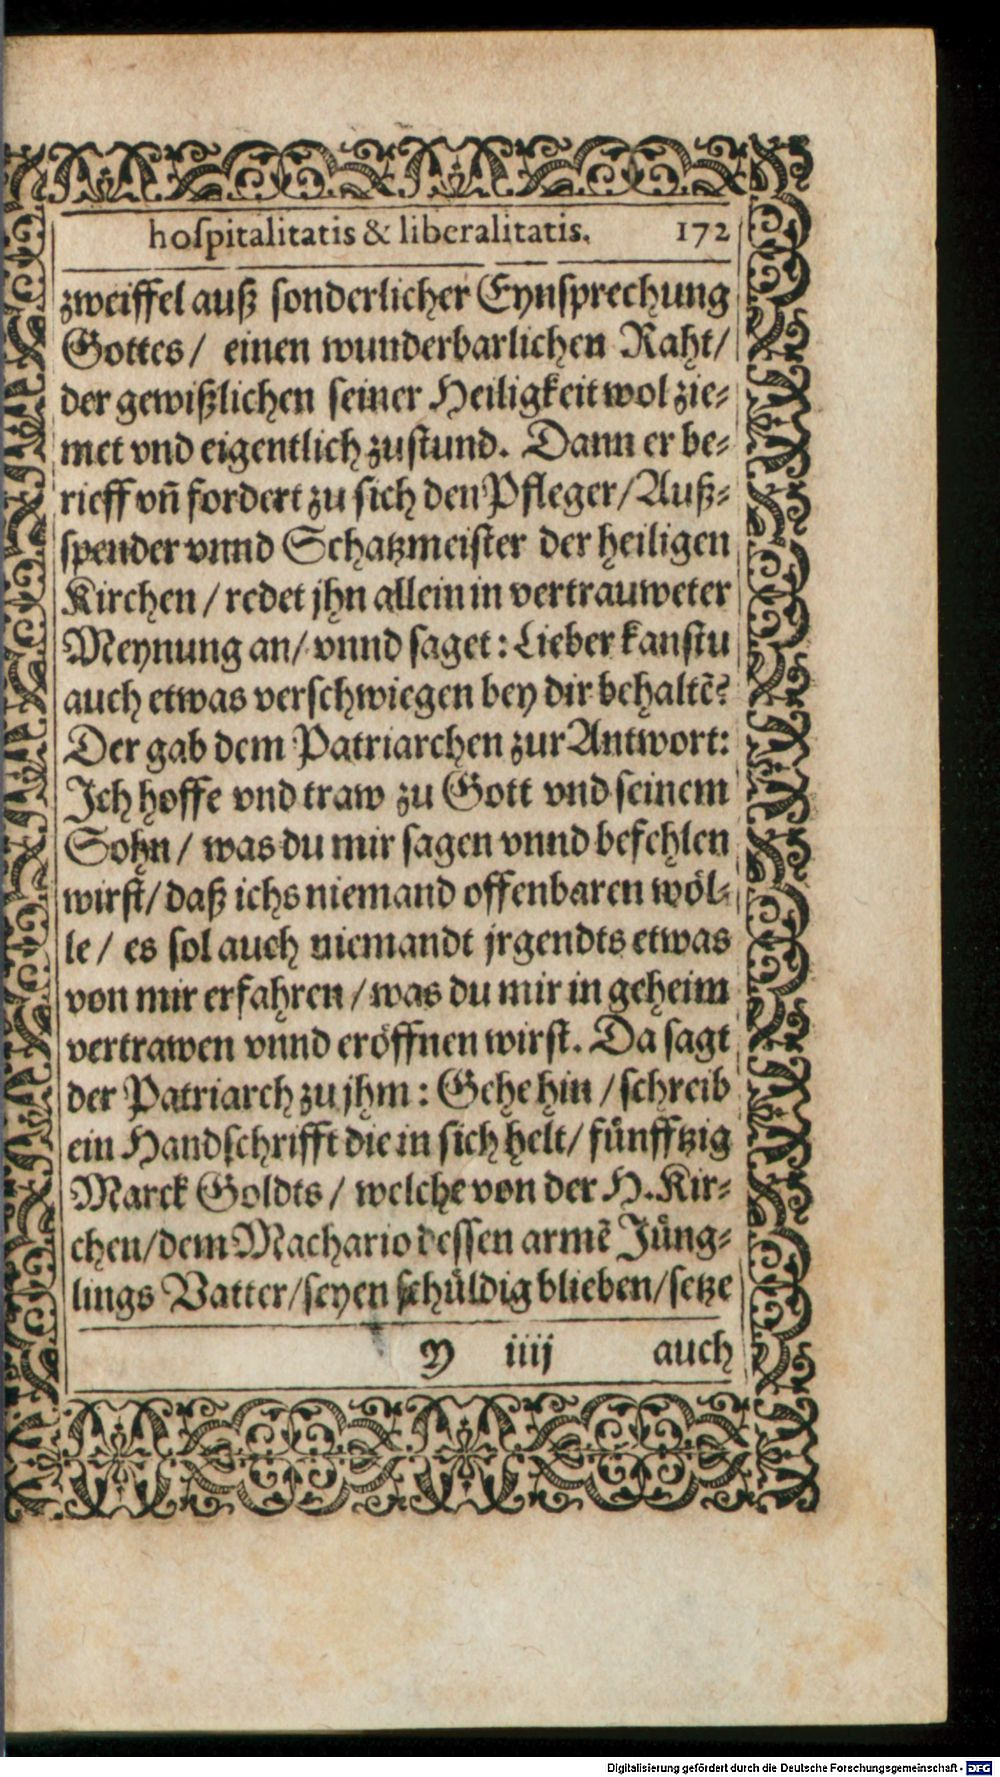 hospitalitatis & liberalitatis. 172
zweiffel auß sonderlicher Eynsprechung
Gottes / einen wunderbarlichen Raht/
der gewißlichen seiner Heiligkeit wol zie-
met vnd eigentlich zustund. Dann er be-
rieff vn̄ fordert zu sich den Pfleger/Auß-
spender vnnd Schatzmeister der heiligen
Kirchen / redet jhn allein in vertrauweter
Meynung an/ vnnd saget: Lieber kanstu
auch etwas verschwiegen bey dir behaltẽ?
Der gab dem Patriarchen zur Antwort:
Ich hoffe vnd traw zu Gott vnd seinem
Sohn / was du mir sagen vnnd befehlen
wirst/ daß ichs niemand offenbaren wöl-
le / es sol auch niemandt jrgendts etwas
von mir erfahren / was du mir in geheim
vertrawen vnnd eröffnen wirst. Da sagt
der Patriarch zu jhm: Gehe hin / schreib
ein Handschrifft die in sich helt/ fünfftzig
Marck Goldts / welche von der H. Kir-
chen/dem Machario dessen armẽ Jüng-
lings Vatter/seyen schüldig blieben/setze
Y iiij auch
Digitalisierung gefördert durch die Deutsche Forschungsgemeinschaft - DFG